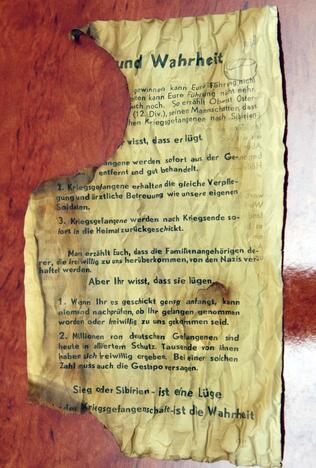 und Wahrheit
gewinnen kann Eure Führung nicht
ten kann Eure Führung nicht mehr.
uch noch. So erzählt Oberst Oster-
(12. Div.), seinen Mannschaften, dass
hen Kriegsgefangenen nach Sibirien
wisst, dass er lügt
angene werden sofort aus der Ge-
entfernt und gut behandelt.
2. Kriegsgefangene erhalten die gleiche Verpfle-
gung und ärztliche Betreuung wie unsere eigenen
Soldaten.
3. Kriegsgefangene werden nach Kriegsende so-
fort in die Heimat zurückgeschickt.
Man erzählt Euch, dass die Familienangehörigen de-
rer, die freiwillig zu uns herüberkommen, von den Nazis ver-
haftet werden.
Aber Ihr wisst, dass sie lügen
1. Wenn Ihr es geschickt genug anfangt, kann
niemand nachprüfen, ob Ihr gefangen genommen
worden oder freiwillig zu uns gekommen seid.
2. Millionen von deutschen Gefangenen sind
heute in alliiertem Schutz. Tausende von ihnen
haben sich freiwillig ergeben. Bei einer solchen
Zahl muss auch die Gestapo versagen.
Sieg oder Sibirien - ist eine Lüge
Kriegsgefangenschaft - ist die Wahrheit